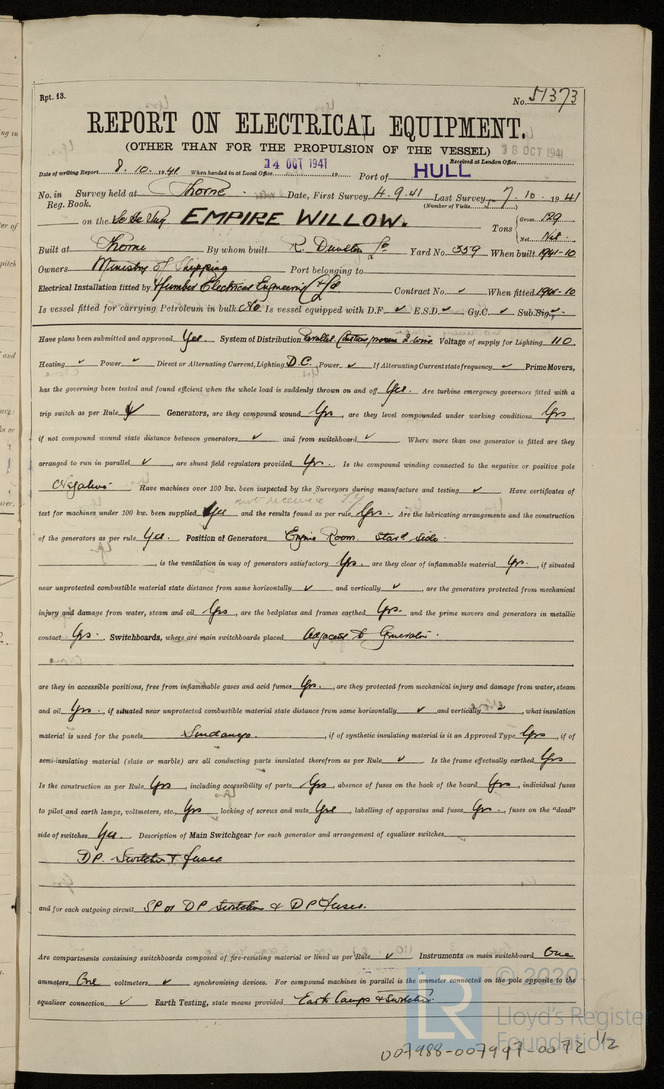 Rpt. 13. No. 51373
REPORT ON ELECTRICAL EQUIPMENT.
(OTHER THAN FOR THE PROPULSION OF THE VESSEL)
Received at London Office 18 OCT 1941
Date of writing Report 8.10.1941 When handed in at Local Office 14 OCT 1941 19 Port of HULL
No. in Survey held at Thorne Date, First Survey 4.9.41 Last Survey 7.10.1941
Reg. Book. (Number of Visits
on the EMPIRE WILLOW. Tons Gross 129 Net Nil
Built at Thorne By whom built R. Dunston Ld Yard No. 559 When built 1941-10
Owners Ministry of Shipping Port belonging to
Electrical Installation fitted by Humber Electrical Engineering Co Ld Contract No. ✓ When fitted 1941-10
Is vessel fitted for carrying Petroleum in bulk No Is vessel equipped with D.F. ✓ E.S.D. ✓ Gy.C. ✓ Sub.Sig. ✓
Have plans been submitted and approved Yes. System of Distribution Parallel 2 wire Voltage of supply for Lighting 110
Heating ✓ Power ✓ Direct or Alternating Current, Lighting D.C. Power ✓ If Alternating Current state frequency ✓ Prime Movers,
has the governing been tested and found efficient when the whole load is suddenly thrown on and off Yes. Are turbine emergency governors fitted with a
trip switch as per Rule ✓ Generators, are they compound wound Yes, are they level compounded under working conditions Yes,
if not compound wound state distance between generators ✓ and from switchboard ✓ Where more than one generator is fitted are they
arranged to run in parallel ✓, are shunt field regulators provided Yes. Is the compound winding connected to the negative or positive pole
Negative Have machines over 100 kw. been inspected by the Surveyors during manufacture and testing ✓ Have certificates of
test for machines under 100 kw. been supplied Yes and the results found as per rule Yes. Are the lubricating arrangements and the construction
of the generators as per rule Yes. Position of Generators Engine Room. Starb side.
, is the ventilation in way of generators satisfactory Yes. are they clear of inflammable material Yes., if situated
near unprotected combustible material state distance from same horizontally ✓ and vertically ✓, are the generators protected from mechanical
injury and damage from water, steam and oil Yes, are the bedplates and frames earthed Yes. and the prime movers and generators in metallic
contact Yes. Switchboards, where are main switchboards placed Adjacent to Generator.
are they in accessible positions, free from inflammable gases and acid fumes Yes., are they protected from mechanical injury and damage from water, steam
and oil Yes., if situated near unprotected combustible material state distance from same horizontally ✓ and vertically 2, what insulation
material is used for the panels Sindanyo., if of synthetic insulating material is it an Approved Type Yes, if of
semi-insulating material (slate or marble) are all conducting parts insulated therefrom as per Rule ✓ Is the frame effectually earthed Yes
Is the construction as per Rule Yes, including accessibility of parts Yes, absence of fuses on the back of the board Yes, individual fuses
to pilot and earth lamps, voltmeters, etc. Yes locking of screws and nuts Yes, labelling of apparatus and fuses Yes., fuses on the "dead"
side of switches Yes. Description of Main Switchgear for each generator and arrangement of equaliser switches
DP. Switches & fuses
and for each outgoing circuit SP or DP switches & DP fuses.
Are compartments containing switchboards composed of fire-resisting material or lined as per Rule ✓ Instruments on main switchboard One
ammeters One voltmeters ✓ synchronising devices. For compound machines in parallel is the ammeter connected on the pole opposite to the
equaliser connection ✓ Earth Testing, state means provided Earth Lamps & Switches.
© 2020
LR Lloyd's Register
Foundation
007988-007997-0072 1/2